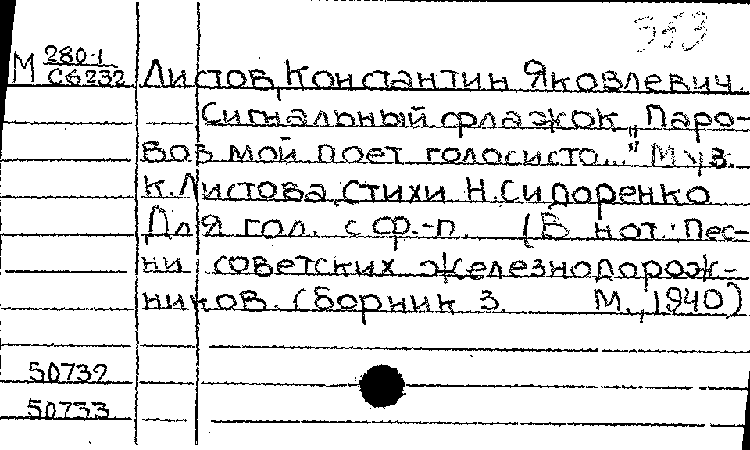 353
М 280-1
С6232
Листов, Константин Яковлевич.
Сигнальный флажок „Паро-
воз мой поет голосисто..." Муз.
К. Листова, стихи Н. Сидоренко
Для гол. с ф.-п. (В нот: Пес-
ни советских железнодорож-
ников. Сборник 3. М., 1940)
50732
50733